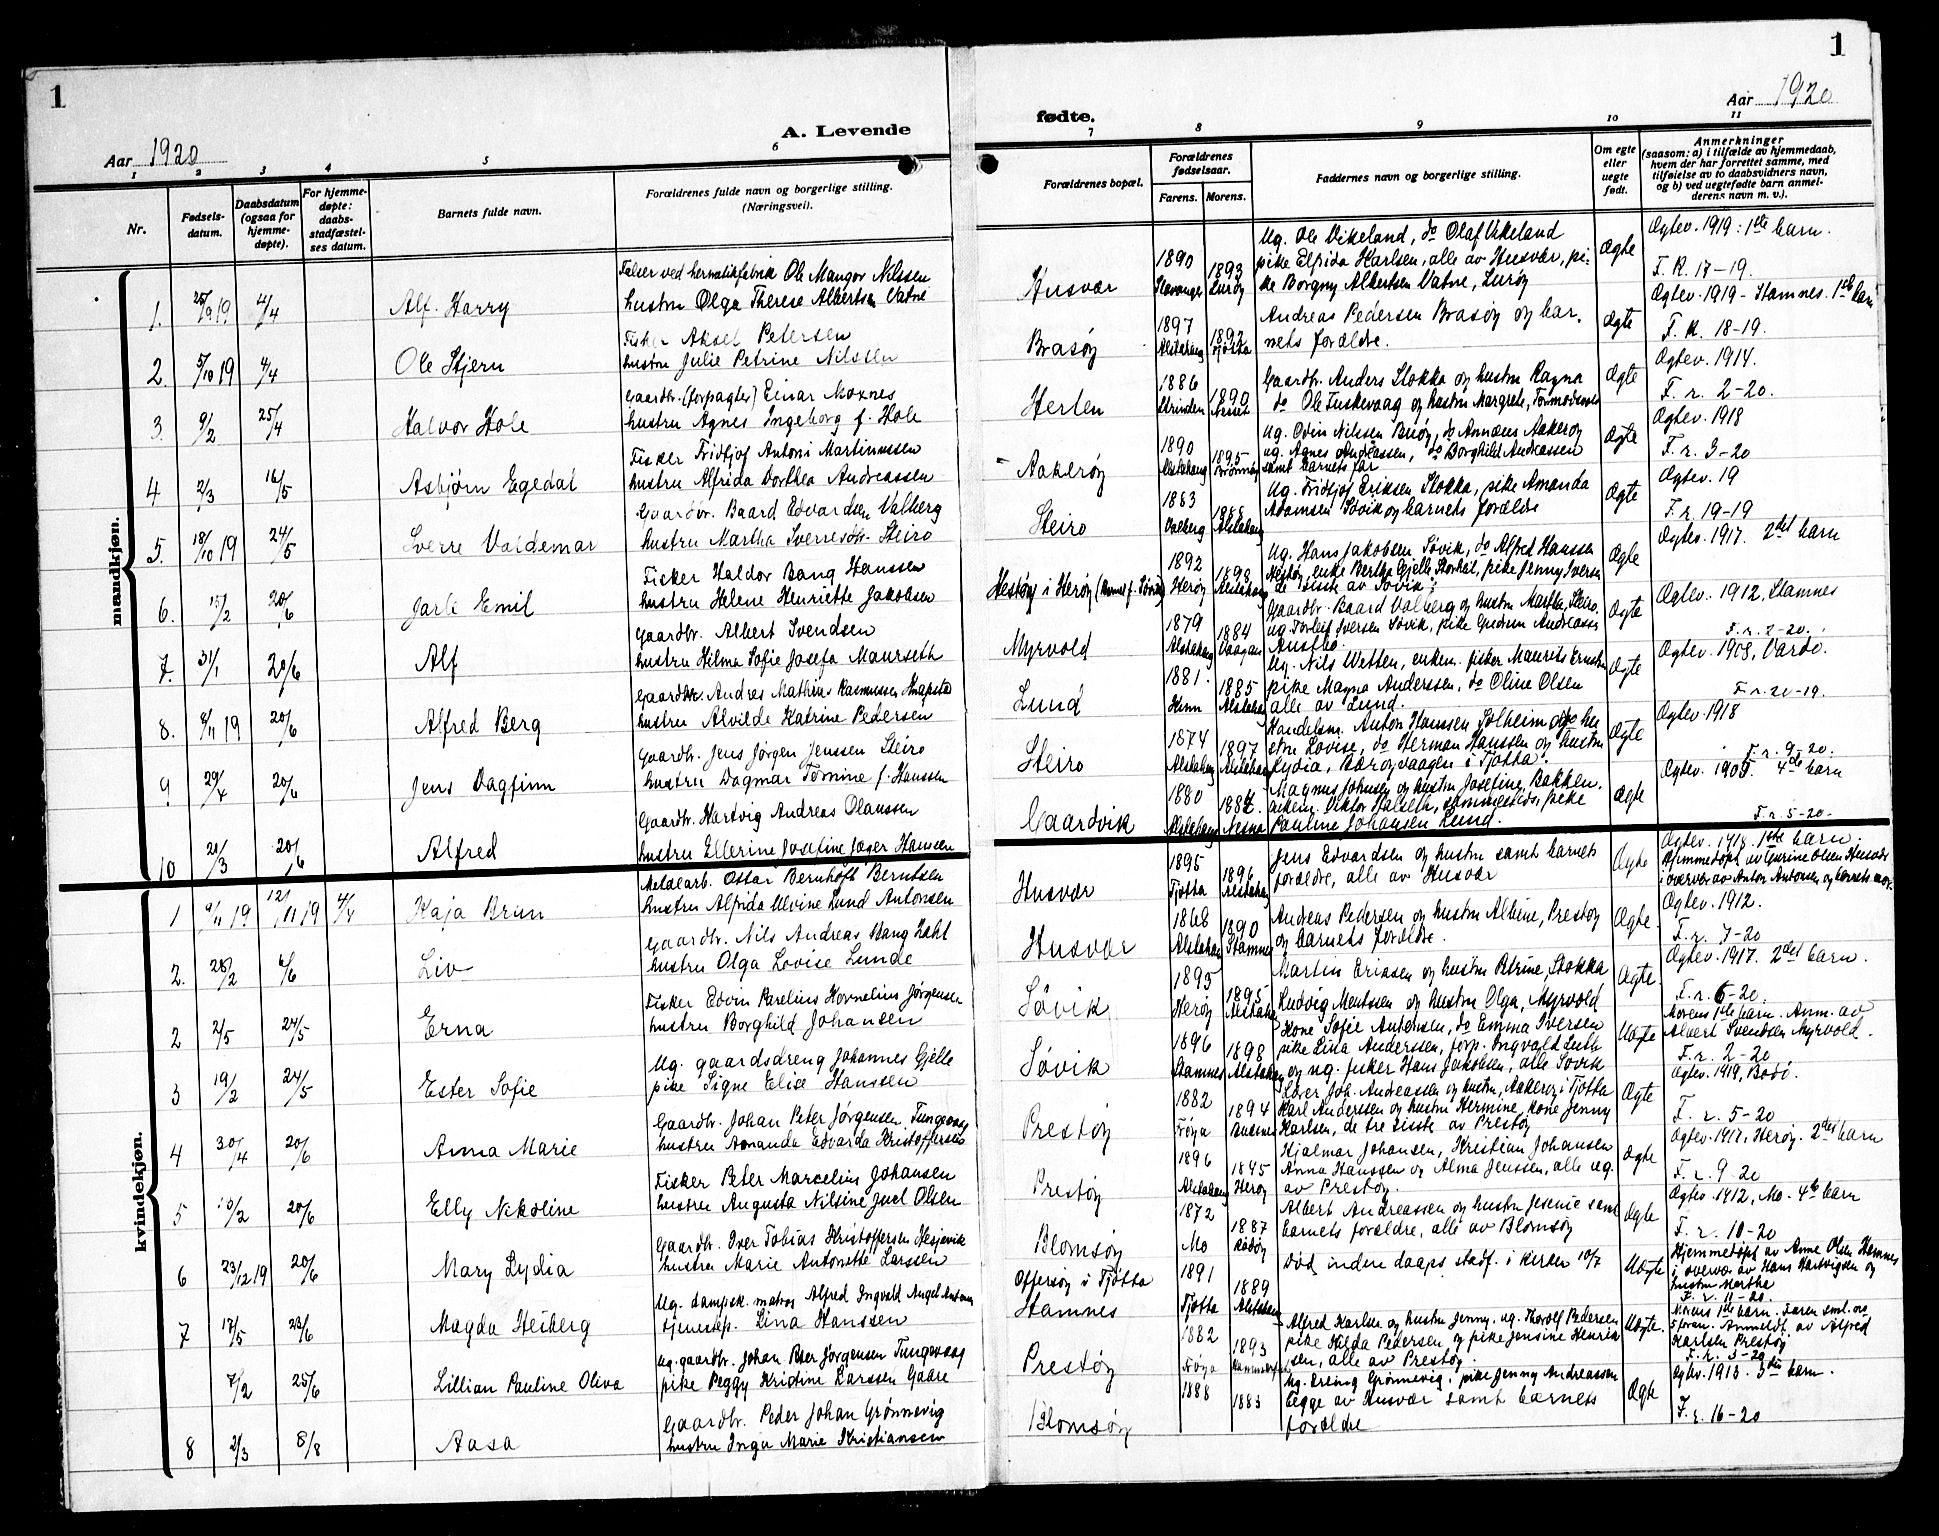 1
Aar 1920
A. Levende
1 2 3 4 5 6
Nr.
Fødsels-
datum.
Daabsdatum
(ogsaa for
hjemme-
døpte).
For hjemme-
døpte:
daabs-
stadfæstel-
ses datum.
Barnets fulde navn.
Forældrenes fulde navn og borgerlige stilling.
(Næringsvei).
mandkjøn.
Falser ved hermetikfabrik Ole Mangor Nilssen
1. 25/9 19 4/4 Alf Harry hustru Olga Therese Albertsen Vatne
Fisker Aksel Petersen
2. 5/10 19 4/4 Ole Stjern hustru Julie Petrine Nilssen
Gaardbr. (forpagter) Einar Moxnes
3. 9/2 25/4 Halvor Hole hustru Agnes Ingeborg f. Hole
Fisker Fridtjof Antoni Martinussen
4 2/3 16/5 Asbjørn Egedal hustru Alfrida Dorthea Andreassen
Gaardbr. Baard Edvardsen Valberg
5. 18/10 19 24/5 Sverre Valdemar hustru Martha Sverresdtr. Steiro
Fisker Haldor Bang Hanssen
6. /2 20/6 Jarle Emil hustru Helene Henriette Jakobsen
Gaardbr. Albert Svendsen
7. 31/1 20/6 Alf hustru Hilma Sofie Josefa Maurseth
Gaardbr. Andreas Mathias Rasmussen
8. 8/11 19 20/6 Alfred Berg hustru Alvilde Katrine Pedersen
Gaardbr. Jens Jørgen Jenssen Steiro
9 29/4 20/6 Jens Dagfinn hustru Dagmar Tomine f. Hanssen
Gaardbr. Hartvig Andreas Olaussen
10 20/3 20/6 Alfred hustru Ellerine Josefine Jæger Hanssen
kvindekjøn.
Metalarb. Ottar Bernhoft Berntsen
1 9/11 19 12/11 19 4/4 Kaja Brun hustru Alfrida Elvine Lund Antonsen
Gaardbr. Nils Andreas Stang Zahl
2. 26/2 4/6 Liv hustru Olga Lovise Lunde
Fisker Edvin Parelius Kornelius Jørgensen
2 2/5 24/5 Erna hustru Borghild Johansen
Ug. gaardsdreng Johannes Gjelle
3 19/2 24/5 Ester Sofie pike Signe Elise Hanssen
Gaardbr. Johan Peter Jørgensen Tungevaag
4 30/4 20/6 Anna Marie hustru Amanda Edvarda Kristoffersen
Fisker Peter Marcelius Johansen
5 /2 20/6 Elly Nikoline hustru Augusta Nilsine Juel Olsen
Gaardbr. Iver Tobias Kristoffersen Hesjevik
6 23/12 19 20/6 Mary Lydia hustru Marie Antonette Larssen
Ug. dampsk. matros Alfred Ingvald Angel
7 17/5 23/6 Magda Heiberg tjenestep. Lina Hanssen
Ug. gaardbr. Johan Peter Jørgensen Tungevaag
7/2 25/6 Lillian Pauline Oliva pike Peggy Kristine Larssen Gaare
Gaardbr. Peder Johan Grønnevig
8 2/3 8/8 Aasa hustru Inga Marie Kristiansen
1
Aar 1920
fødte.
7 8 9 10 11
Forældrenes bopæl.
Forældrenes
fødselsaar.
Farens. Morens.
Faddernes navn og borgerlige stilling.
Om egte
eller
uegte
født.
Anmerkninger
(saasom: a) i tilfælde av hjemmedaab,
hvem der har forrettet samme, med
tilføielse av to daabsvidners navn,
og b) ved uegtefødte barn anmel-
derens navn m. v.).
Husvær 1890 Stavanger 1893 Lurøy
Ug. Ole Vikeland, do Olaf Vikeland
pike Elfrida Karlsen, alle av Husvær, pi-
ke Borgny Albertsen Vatne, Lurøy
Ægte
Ægtev. 1919: 1ste barn.
F. R. 17-19.
Brasøy 1897 Alstahaug 1892 Tjøtta
Andreas Pedersen Brasøy og bar-
nets forældre.
Ægte
Ægtev. 1919 - Stamnes. 1ste barn
F. R. 18-19.
Herlen 1886 Strinden 1890
Gaardbr. Anders Slokka og hustru Ragna
do Ole Tuskevaag og hustru Margrete,
Ægte
Ægtev. 1914.
F. r. 2-20.
Aakerøy 1890 Alstahaug 1895 Brønnøy
Ug. Odin Nilssen Buøy, do Annæus Aakerøy
ug. Agnes Andreassen, do Borghild Andreassen
samt barnets far
Ægte
Ægtev. 1918
F. r. 3-20
Steiro 1883 Valberg 1888 Alstahaug
Ug. Fridtjof Eriksen Stokka, pike Amanda
Adamsen Søvik og barnets forældre
Ægte
Ægtev. 19
F. r. 19-19
Hestøy i Herøy 1892 Herøy Alstahaug
Ug. Hans Jakobsen Søvik, do Alfred Hanssen
Hestøy, enke Bertha Gjelle, pike Jenny Iversen
de siste av Søvik
Ægte
Ægtev. 1917. 2det barn
Myrvold 1879 Alstahaug 1884 Vaagan
Gaardbr. Baard Valberg og hustru Martha, Steiro.
ug. Torleif Iversen Søvik, pike Gudrun Andreasse
Austbø.
Ægte
Ægtev. 1912, Stamnes
F. r. 2-20.
Lund 1881. 1885 Alstahaug
Ug. Nils Wetten, enkem. fisker Maurits Ernstsen
pike Magna Anderssen, do Oline Olsen
alle av Lund.
Ægte
Ægtev. 1908, Vardø.
F. r. 20-19.
Steiro 1874 Alstahaug 1897 Alstahaug
Handelsm. Anton Hanssen Solheim og hu-
stru Lovise, do Herman Hanssen og hustru
Lydia, Bærøyvaagen i Tjøtta.
Ægte
Ægtev. 1918
F. r. 9-20.
Gaardvik 1880 Alstahaug Nesna
Magnus Johnsen og hustru Josefine, Bakken.
enkem. Viktor Halseth, sammesteds, pike
Pauline Johansen Lund.
Ægte
4de barn
F. r. 5-20.
Husvær 1895 Tjøtta 1896 Alstahaug
Jens Edvardsen og hustru samt barnets
forældre, alle av Husvær
Ægte
Ægtev. 1918. 1ste barn.
Hjemmedøpt av Gurine Olsen Husvær
i overvær av Anton Antonsen og barnets mor.
Husvær 1868 Alstahaug 1890 Stamnes
Andreas Pedersen og hustru Albine, Prestøy
og barnets forældre.
Ægte.
Ægtev. 1912.
F. r. 7-20
Søvik 1895 Herøy 1895 Alstahaug
Martin Eriksen og hustru Petrine, Stokka
Ludvig Mentssen og hustru Olga, Myrvold
Ægte.
Ægtev. 1917. 2det barn.
F. r. 6-20.
Søvik 1896 Stamnes 1898 Alstahaug
Kone Sofie Antonsen, do Emma Iversen
pike Lina Anderssen, forp. Ingvald Luth
og ug. fisker Hans Jakobsen, alle Søvik
Uægte
Morens 1ste barn. Anm. av
Albert Svendsen Myrvold.
F. r. 2-20
Prestøy 1882 Frøya 1894
Lover Joh. Andreassen og hustru, Aakerøy i Tjøtta
Karl Anderssen og hustru Hermine, kone Jenny
Karlsen, de tre siste av Prestøy
Ægte
Ægtev. 1919, Bodø.
F. r. 5-20
Prestøy 1896 Alstahaug Herøy
Hjalmar Johansen, Kristian Johansen
Anna Hanssen og Alma Jenssen, alle ug.
av Prestøy.
Ægte
Ægtev. 1917, Herøy. 2det barn
F. r. 9-20
Blomsøy 1872 Mo 1887 Rødøy
Albert Andreassen og hustru Jesenie samt
barnets forældre, alle av Blomsøy
Ægte
Ægtev. 1912, Mo. 4de barn
F. r. 10-20
Offersøy i Tjøtta
Stamnes 1891 Tjøtta 1889 Alstahaug
Død inden daaps stadf. i kirken 10/7
Uægte
Hjemmedøpt av Anne Olsen Hamnes
i overvær av Hans Hartvigsen og
hustru Martha
F. r. 11-20.
Prestøy 1882 Frøya 1893
Alfred Karlsen og hustru Jenny, ug. Thorolf Pedersen
pike Hilda Pedersen og pike Jensine Henrik-
sen, alle av Prestøy.
Uægte.
Morens 1ste barn. Faren
Anmeldt av Alfred
Karlsen Prestøy
F. r. 3-20
Blomsøy 1888 1883
Ug. Erling Grønnevig, pike Jenny Andreassen
begge av Husvær samt barnets
forældre
Ægte
3die barn.
F. r. 16-20